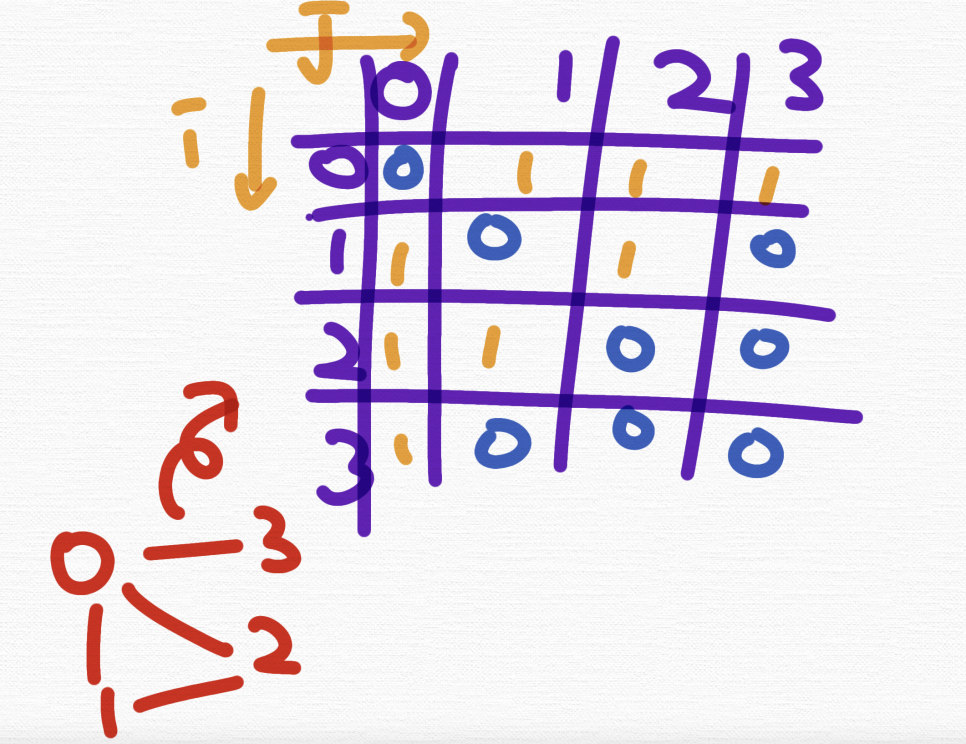 J
i 0 1 2 3
0 0 1 1 1
1 1 0 1 0
2 1 1 0 0
3 1 0 0 0
0 3
2
1